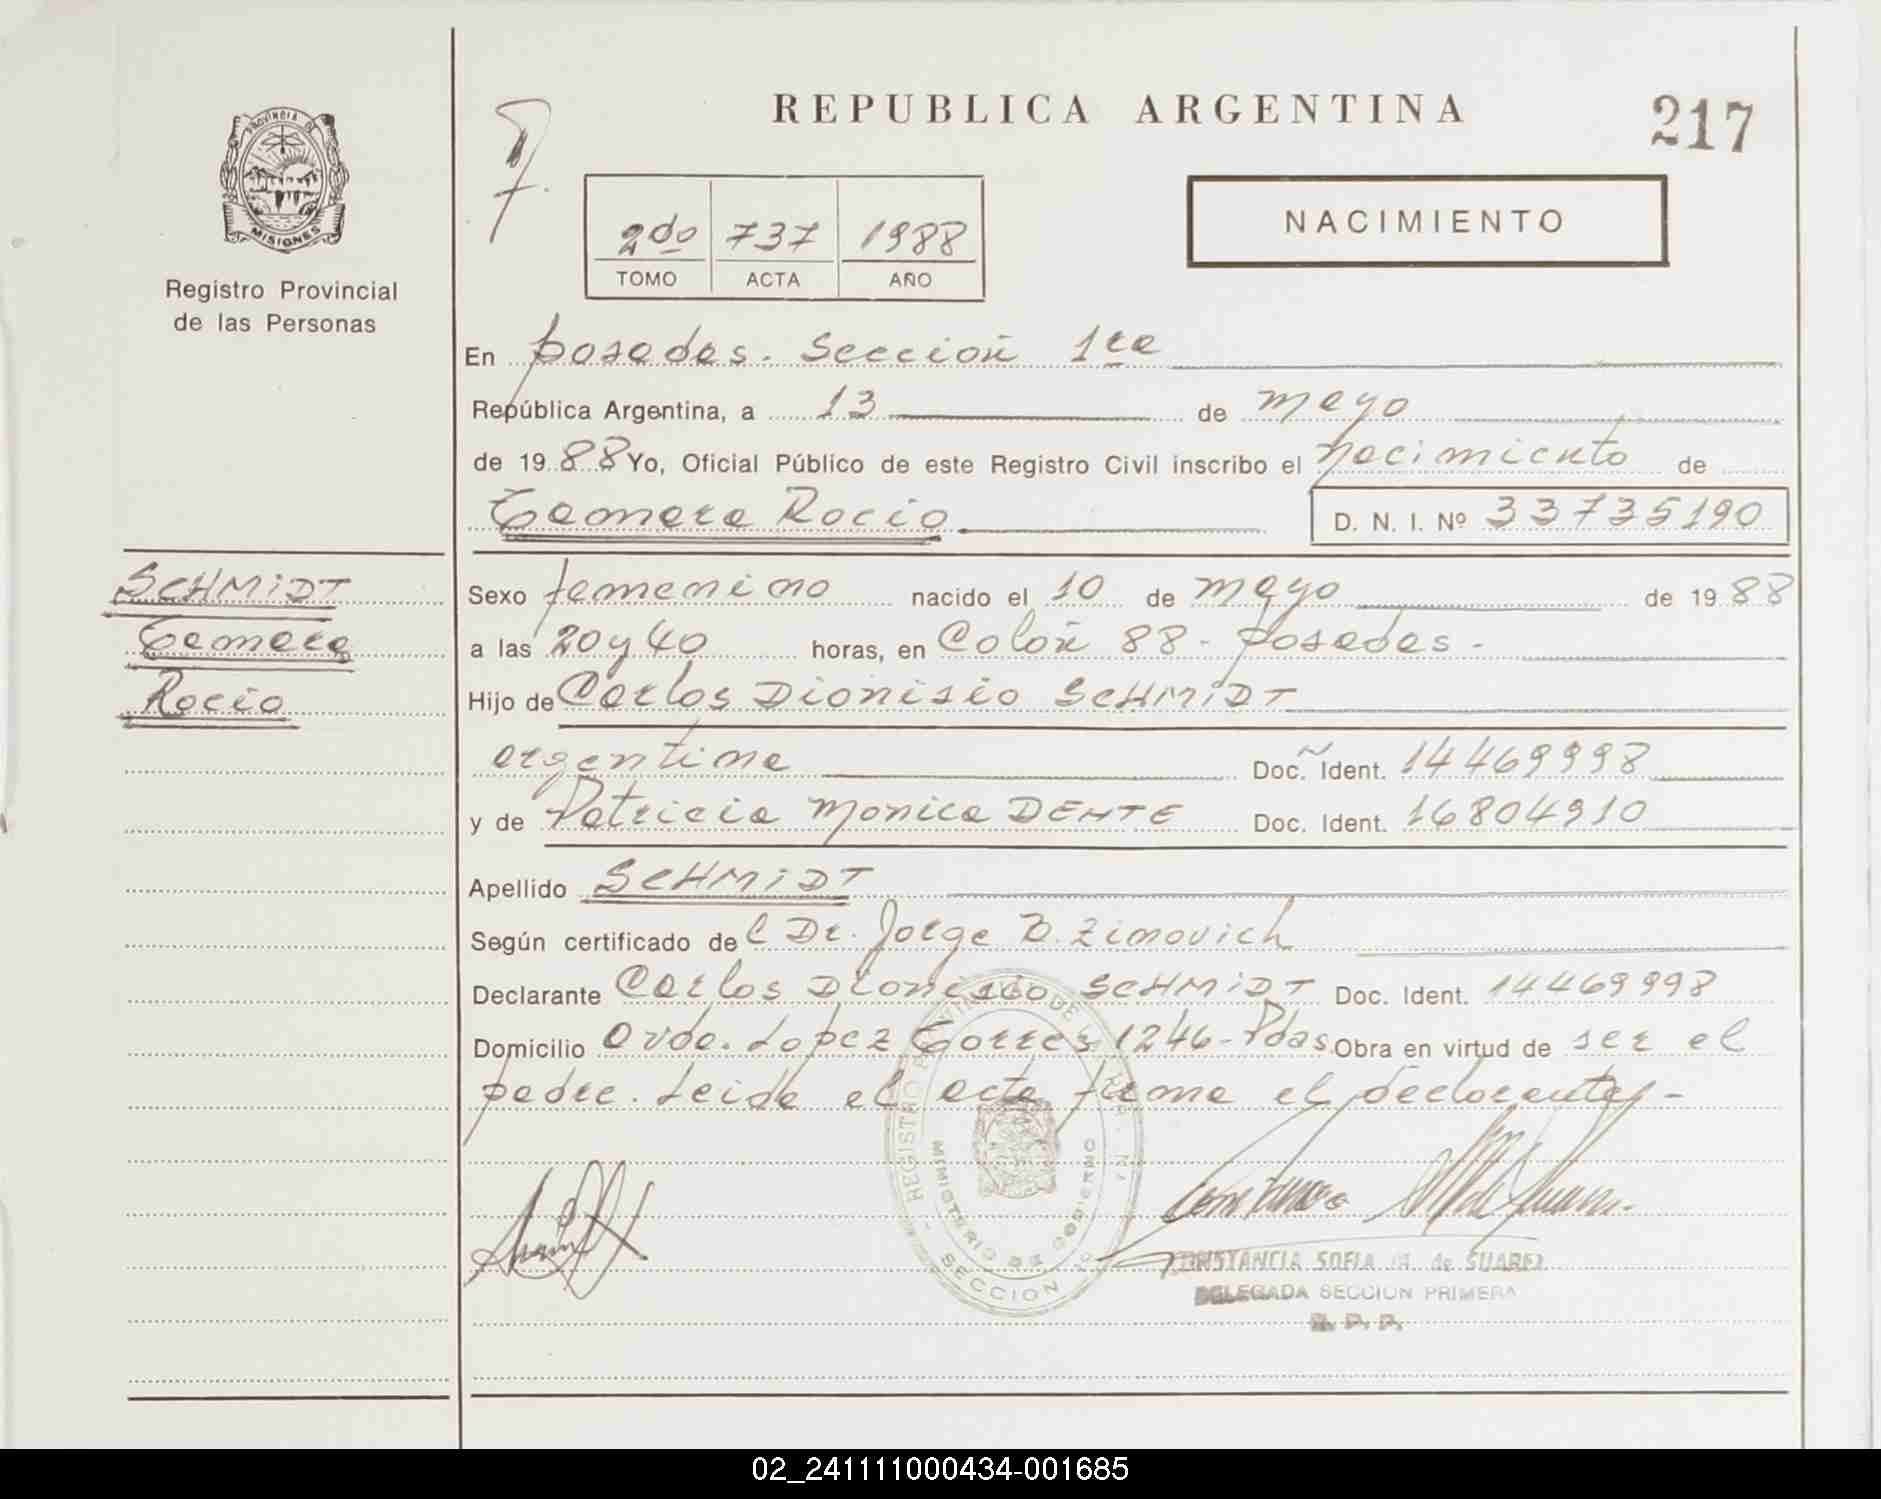 REPUBLICA ARGENTINA
217
PROVINCIA DE
MISIONES
Registro Provincial
de las Personas
2do 737 1988
TOMO ACTA AÑO
NACIMIENTO
En Posadas. Sección 1ra
República Argentina, a 13 de mayo
de 1988 Yo, Oficial Público de este Registro Civil inscribo el nacimiento de
Tamara Rocio D. N. I. Nº 33735190
SCHMIDT
Tamara
Rocio
Sexo femenino nacido el 10 de mayo de 1988
a las 20 y 40 horas, en Colón 88 - Posadas -
Hijo de Carlos Dionisio SCHMIDT
argentina Doc. Ident. 14469998
y de Patricia Monica DENTE Doc. Ident. 16804910
Apellido SCHMIDT
Según certificado del Dr. Jorge B. Zimovich
Declarante Carlos Dionisio SCHMIDT Doc. Ident. 14469998
Domicilio Avda. Lopez Torres 1246 - Pdas. Obra en virtud de ser el
padre. Leida el acta firma el declarante -
MINISTERIO DE GOBIERNO
SECCION 1a
CONSTANCIA SOFIA de SUAREZ
DELEGADA SECCION PRIMERA
R. P. P.
02_241111000434-001685